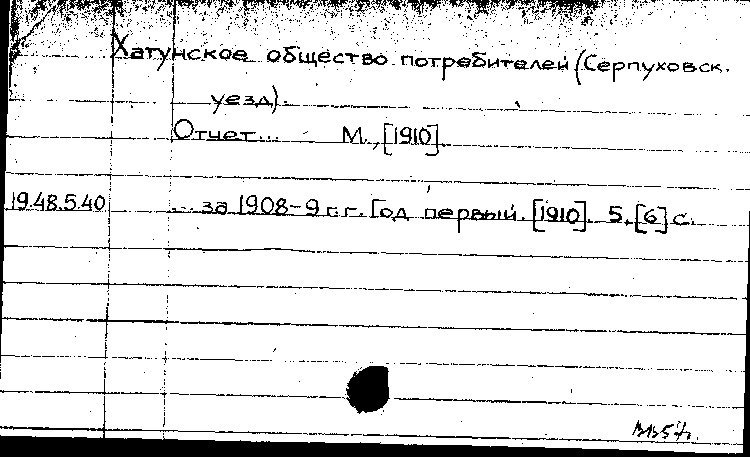 Хатунское общество потребителей (Серпуховск.
уезд).
Отчет... М., [1910].
19.48.5.40 ... за 1908-9 г.г. Год первый. [1910]. 5, [6] с.